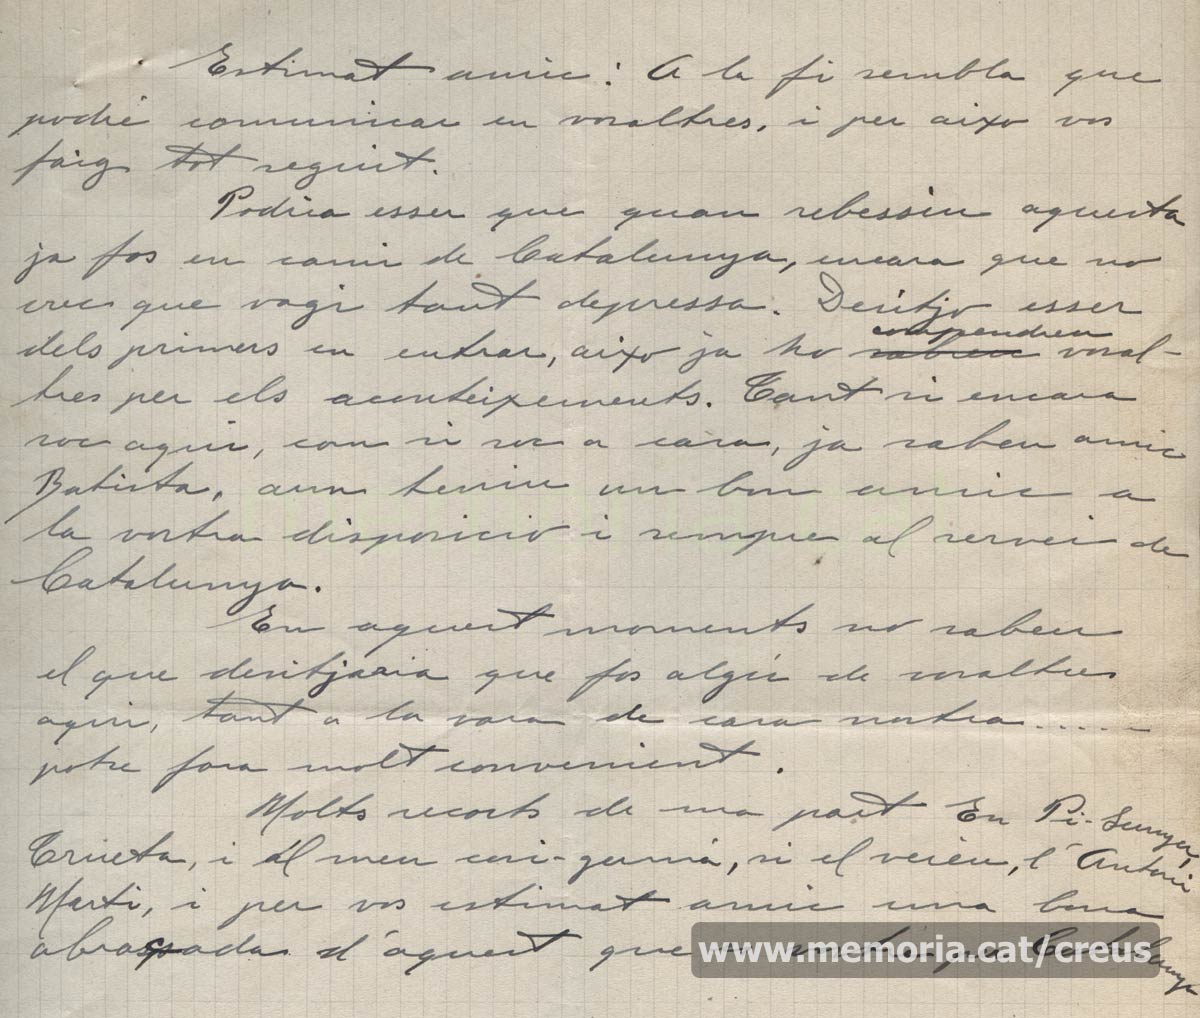 Estimat amic: A la fi sembla que
podré comunicar en vosaltres, i per aixo vos
faig tot seguit.
Podria esser que quan rebessiu aquesta
ja fos en cami de Catalunya, encara que no
crec que vagi tant depressa. Desitjo esser
dels primers en entrar, aixo ja ho sabreu compendreu vosal-
tres per els aconteixements. Tant si encara
soc aqui, com si soc a casa, ja sabeu amic
Batista, am teniu un bon amic a
la vostra disposició i sempre al servei de
Catalunya.
En aquest moments no sabeu
el que desitjaria que fos algú de vosaltres
aqui, tant a la vora de casa nostra.....
potse fora molt convenient.
Molts recorts de ma part En Pi-Sunyer,
Trueta, i al meu cosi-germá, si el veieu, l'Antoni
Marti, i per vos estimat amic una bona
abrasçada d'aquest que Catalunya
www.memoria.cat/creus